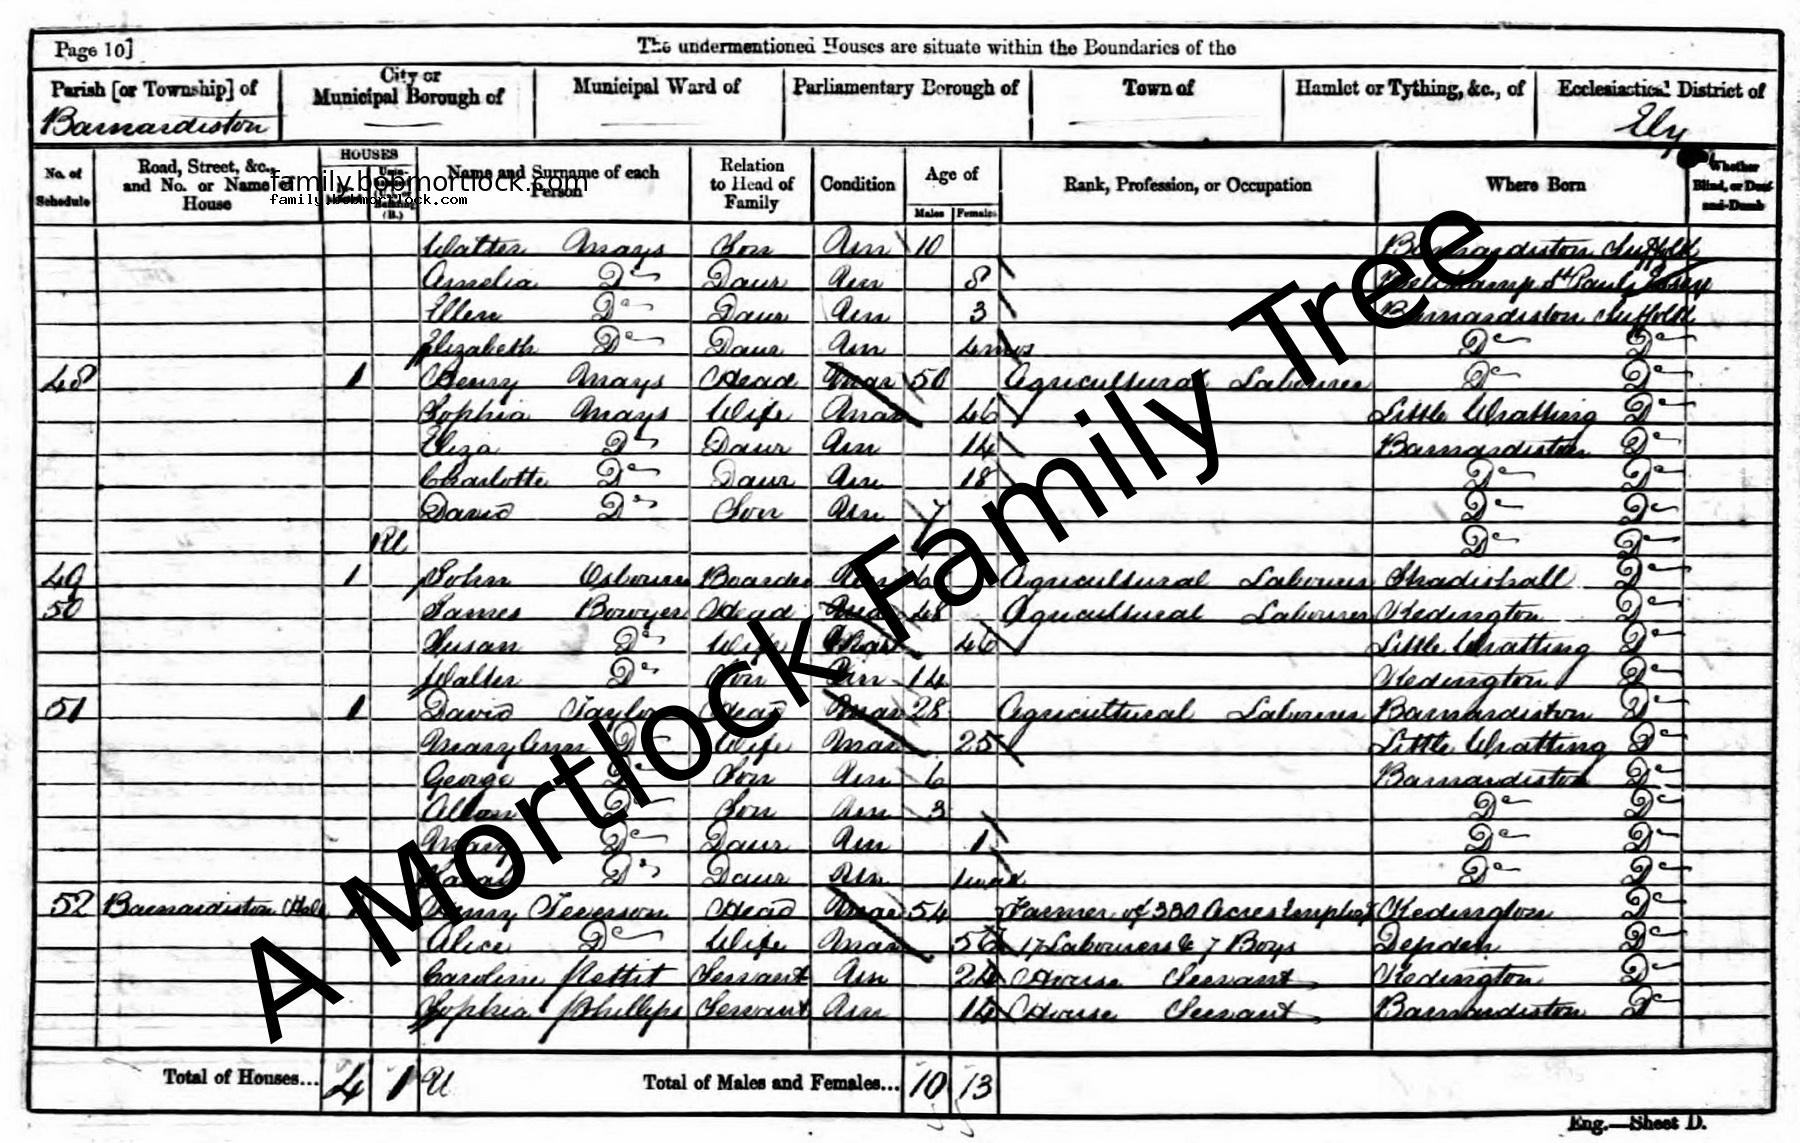 Page 10]
The undermentioned Houses are situate within the Boundaries of the
Parish [or Township] of
Barnardiston
City or
Municipal Borough of
Municipal Ward of
Parliamentary Borough of
Town of
Hamlet or Tything, &c., of
Ecclesiastical District of
Ely
No. of
Schedule
Road, Street, &c.,
and No. or Name of
House
HOUSES
Name and Surname of each
Person
Relation
to Head of
Family
Condition
Age of
Males
Females
Rank, Profession, or Occupation
Where Born
Whether
Blind, or Deaf
and-Dumb
family.bobmortlock.com
family.bobmortlock.com
Walter Mays Son Un 10 Barnardiston Suffolk
Amelia Do Daur Un 8 Belchamp St Pauls Essex
Ellen Do Daur Un 3 Barnardiston Suffolk
Elizabeth Do Daur Un 4mos Do Do
48 1 Henry Mays Head Mar 50 Agricultural Labourer Do Do
Sophia Mays Wife Mar 46 Little Wratting Do
Eliza Do Daur Un 14 Barnardiston Do
Charlotte Do Daur Un 18 Do Do
David Do Son Un 7 Do Do
1U Do Do
49 1 John Osbourn Boarder Un Agricultural Labourer Stradishall Do
50 James Bowyer Head Mar 48 Agricultural Labourer Kedington Do
Susan Do Wife Mar 46 Little Wratting Do
Walter Do Son Un 14 Kedington Do
51 1 David Taylor Head Mar 28 Agricultural Labourer Barnardiston Do
Mary Ann Do Wife Mar 25 Little Wratting Do
George Do Son Un 6 Barnardiston Do
Do Son Un 3 Do Do
Mary Do Daur Un 1 Do Do
Sarah Do Daur Un Do Do
52 Barnardiston Hall 1 Henry Teverson Head Mar 54 Farmer of 380 Acres Employs Kedington Do
Alice Do Wife Mar 56 17 Labourers & 7 Boys Depden Do
Caroline Pettit Servant Un 24 House Servant Kedington Do
Sophia Phillips Servant Un 14 House Servant Barnardiston Do
Total of Houses... 4 1 U Total of Males and Females... 10 13
Eng.—Sheet D.
A Mortlock Family Tree